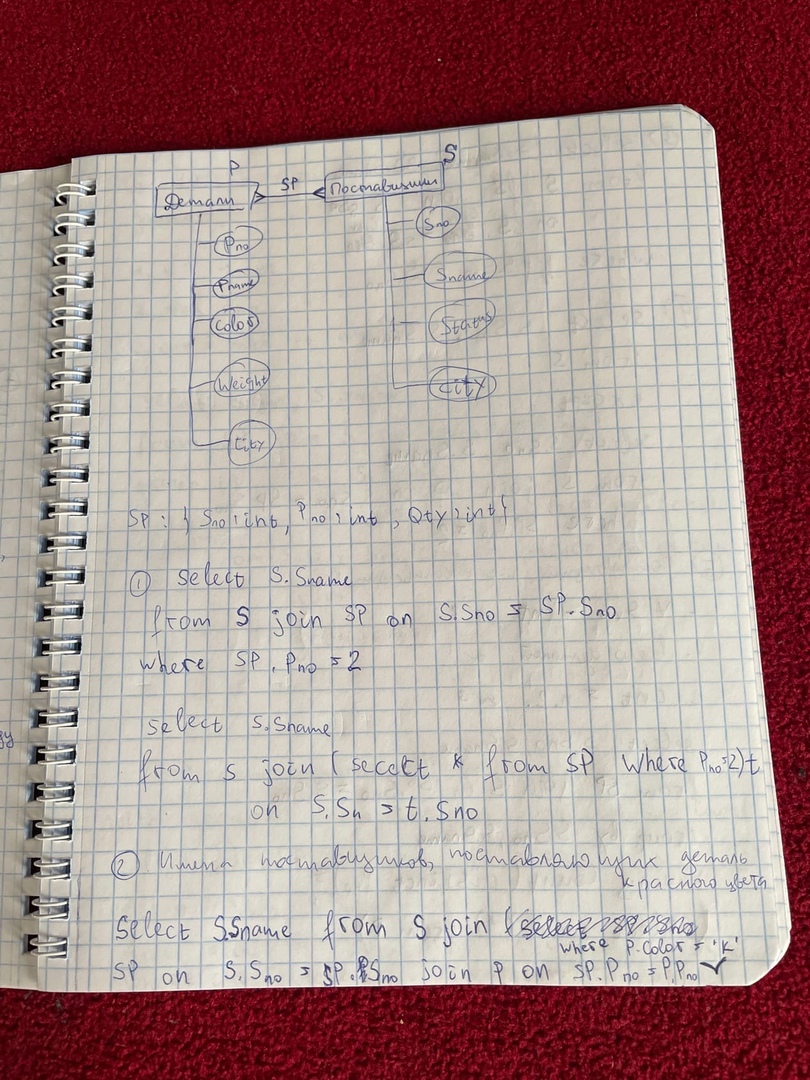 P
S
Детали
SP
Поставщики
Pno
Sno
Pname
Sname
Color
Status
Weight
City
City
SP : { Sno : int, Pno : int, Qty : int }
① select S.Sname
from S join SP on S.Sno = SP.Sno
where SP.Pno = 2
select S.Sname
from S join (select * from SP where Pno=2)t
on S.Sn = t.Sno
② Имена поставщиков, поставляющих деталь
красного цвета
select S.Sname from S join (
where P.Color = 'K'
SP on S.Sno = SP.Sno join P on SP.Pno = P.Pno